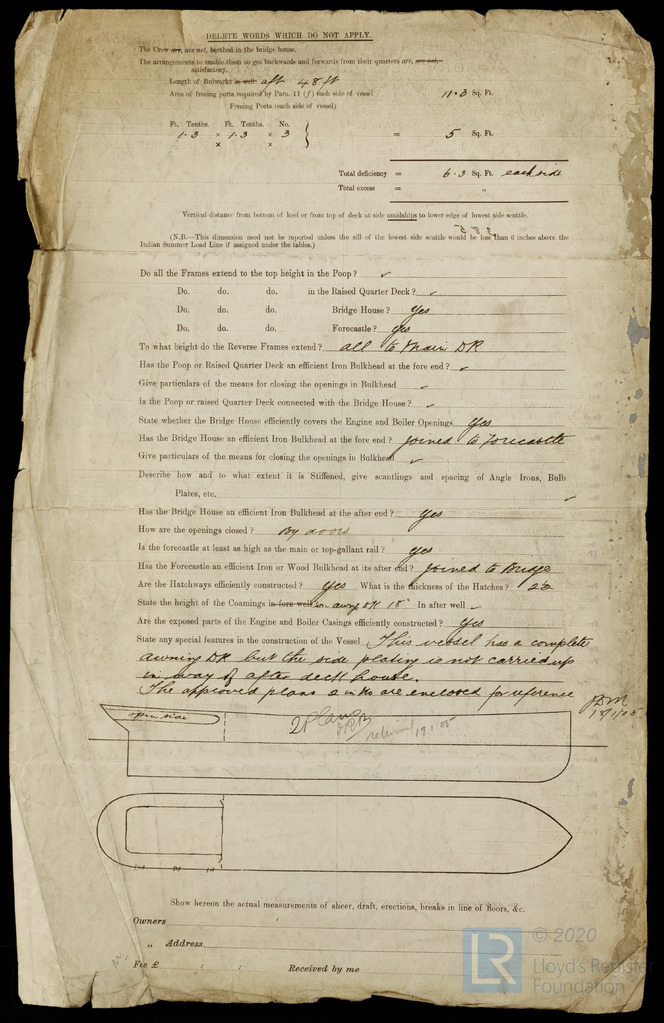 DELETE WORDS WHICH DO NOT APPLY.
The Crew are, are not, berthed in the bridge house.
The arrangements to enable them to get backwards and forwards from their quarters are, are not,
satisfactory.
Length of Bulwarks in well aft 48 ft
Area of freeing ports required by Para. 11 (f) each side of vessel 11·3 Sq. Ft.
Freeing Ports (each side of vessel)
Ft. Tenths. Ft. Tenths. No.
1·3 × 1·3 × 3 } = 5 Sq. Ft.
× ×
Total deficiency = 6·3 Sq. Ft. each side
Total excess = "
Vertical distance from bottom of keel or from top of deck at side amidships to lower edge of lowest side scuttle.
(N.B.—This dimension need not be reported unless the sill of the lowest side scuttle would be less than 6 inches above the
Indian Summer Load Line if assigned under the tables.)
Do all the Frames extend to the top height in the Poop? ✓
Do. do. do. in the Raised Quarter Deck? ✓
Do. do. do. Bridge House? Yes
Do. do. do. Forecastle? Yes
To what height do the Reverse Frames extend? all to Main DK
Has the Poop or Raised Quarter Deck an efficient Iron Bulkhead at the fore end? ✓
Give particulars of the means for closing the openings in Bulkhead ✓
Is the Poop or raised Quarter Deck connected with the Bridge House? ✓
State whether the Bridge House efficiently covers the Engine and Boiler Openings Yes
Has the Bridge House an efficient Iron Bulkhead at the fore end? Joined to Forecastle
Give particulars of the means for closing the openings in Bulkhead ✓
Describe how and to what extent it is Stiffened, give scantlings and spacing of Angle Irons, Bulb
Plates, etc. ✓
Has the Bridge House an efficient Iron Bulkhead at the after end? Yes
How are the openings closed? By doors
Is the forecastle at least as high as the main or top-gallant rail? Yes
Has the Forecastle an efficient Iron or Wood Bulkhead at its after end? Joined to Bridge
Are the Hatchways efficiently constructed? Yes What is the thickness of the Hatches?
State the height of the Coamings in fore well in awng DK 18" In after well ✓
Are the exposed parts of the Engine and Boiler Casings efficiently constructed? Yes
State any special features in the construction of the Vessel This vessel has a complete
awning DK but the side plating is not carried up
in way of after deck house.
The approved plans 2 in No are enclosed for reference
18/1/05
open side
2 Plans
returned 19.1.05
Show hereon the actual measurements of sheer, draft, erections, breaks in line of floors, &c.
Owners
" Address
Fee £ : : Received by me
LR
© 2020
Lloyd's Register
Foundation